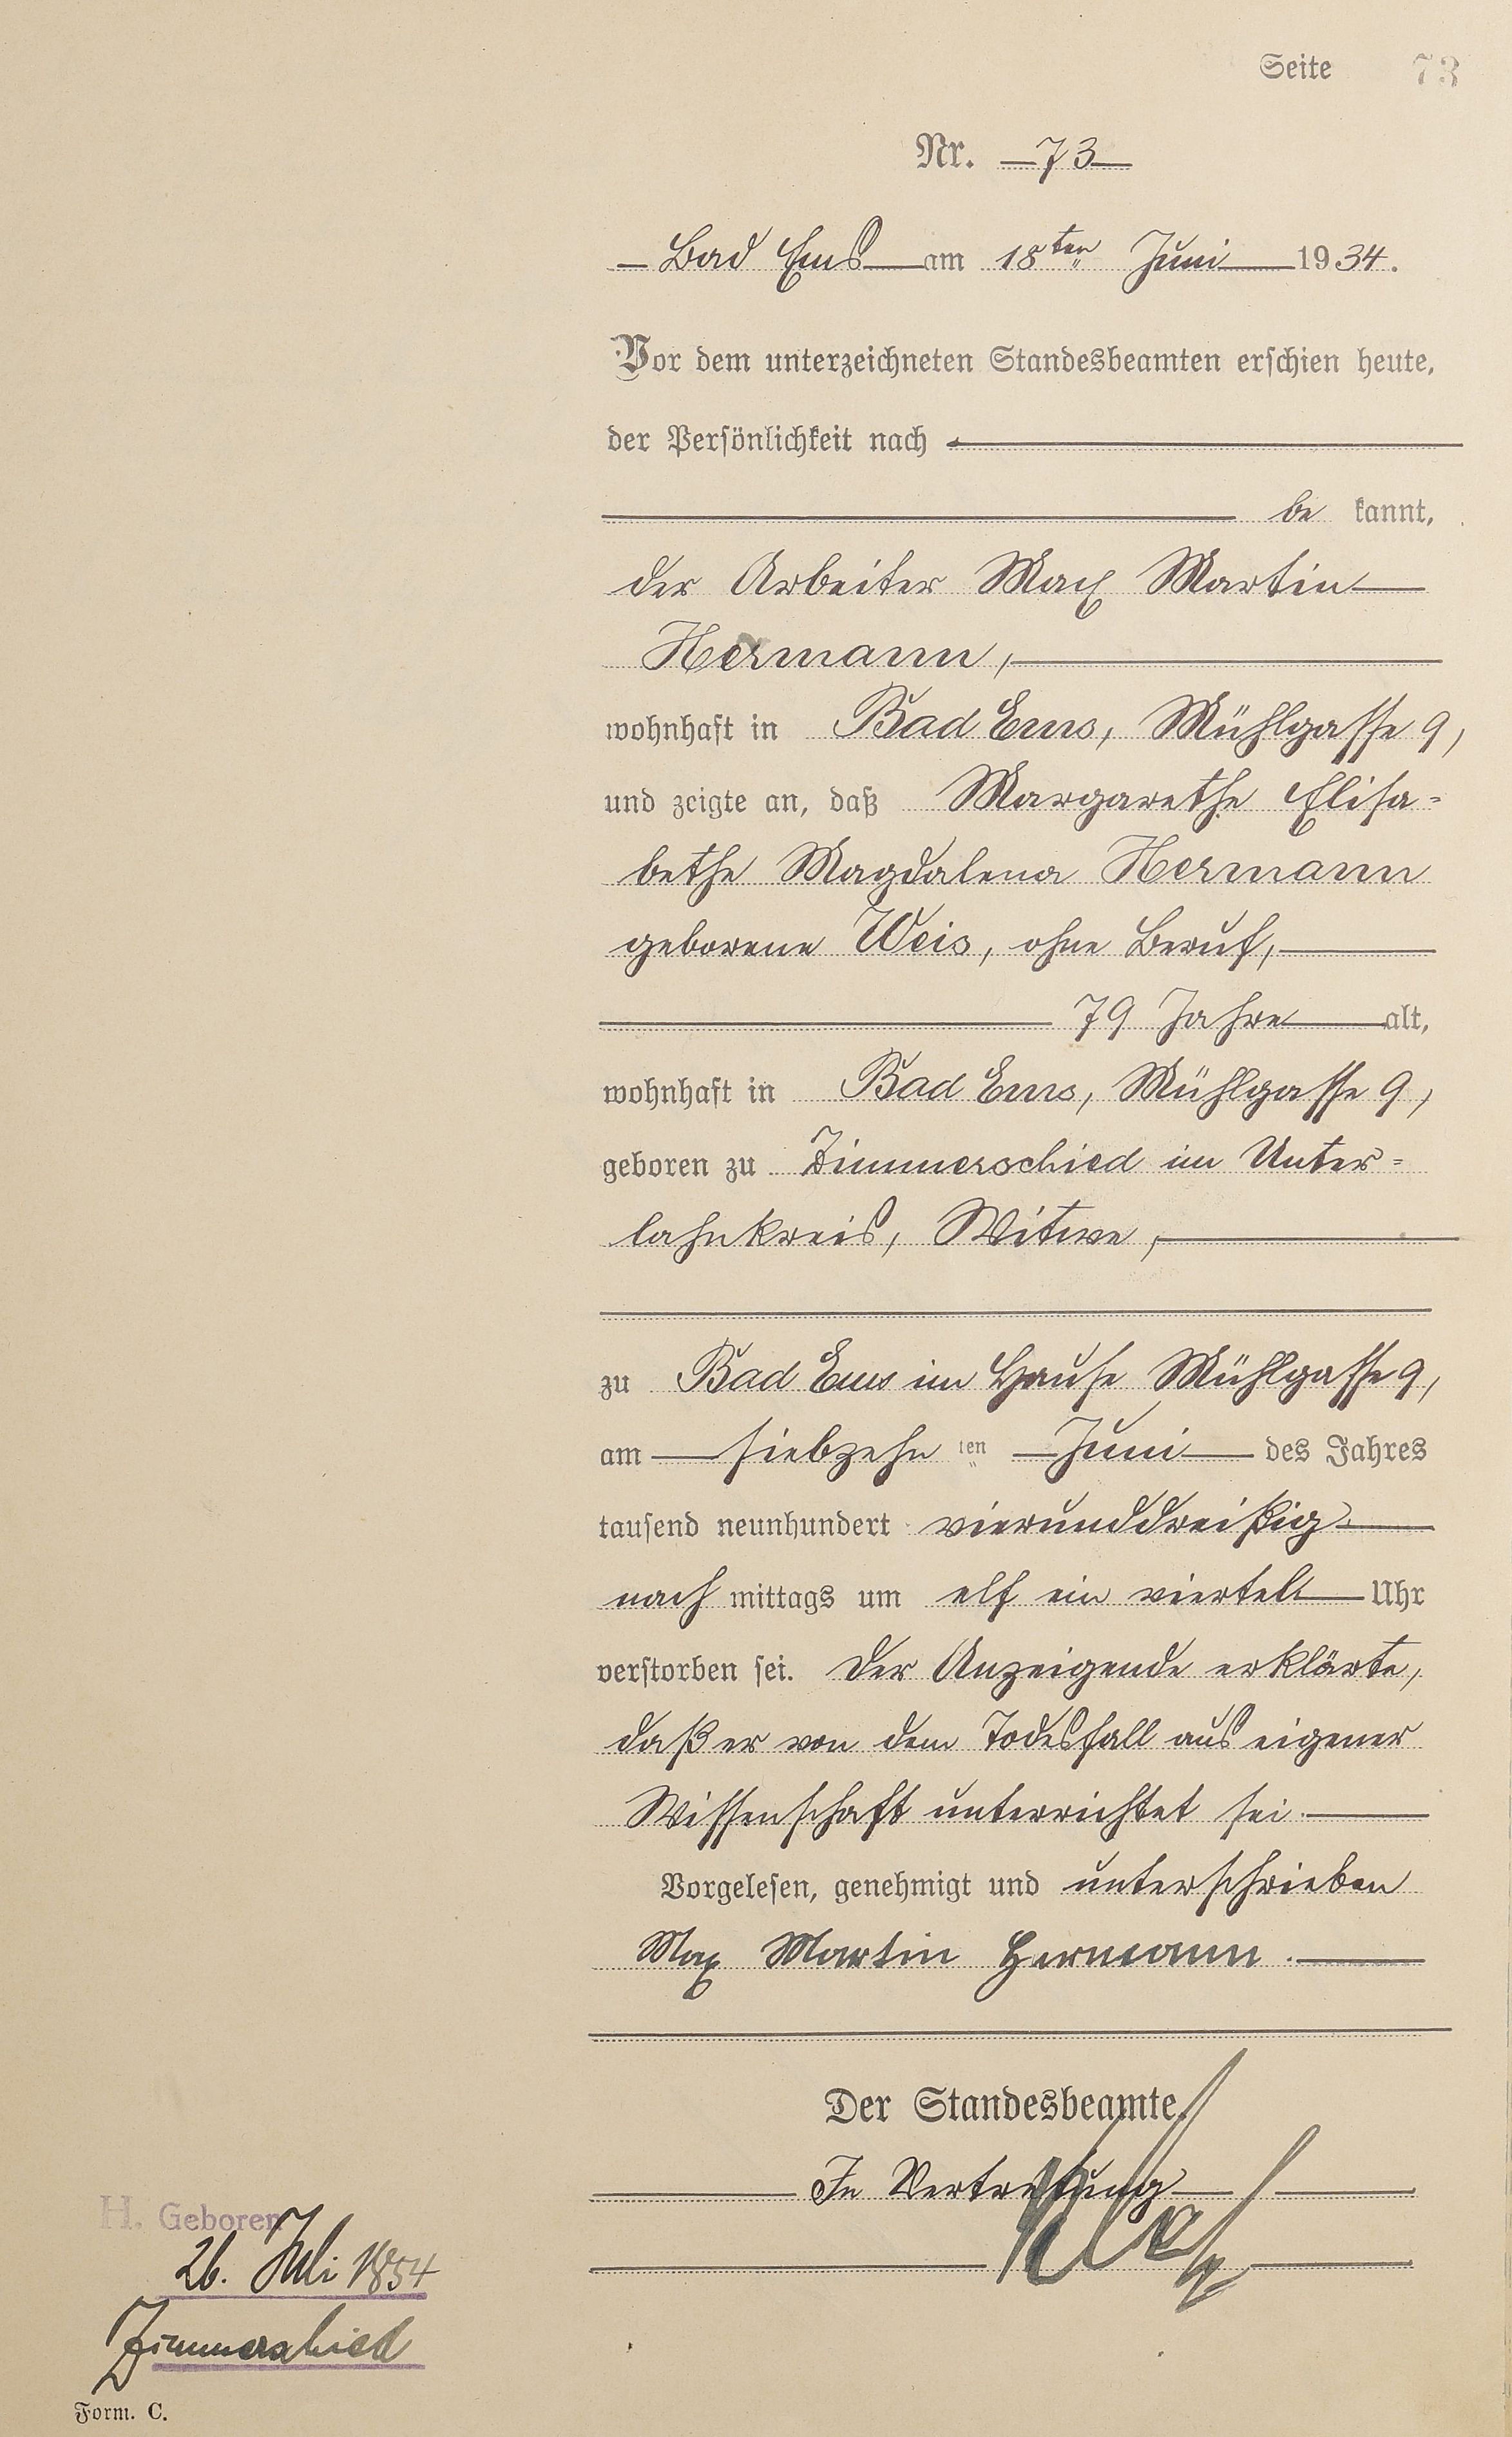 Seite 73
Nr. 73
Bad Ems am 18ten Juni 1934.
Vor dem unterzeichneten Standesbeamten erschien heute,
der Persönlichkeit nach
be kannt,
der Arbeiter Max Martin
Hermann,
wohnhaft in Bad Ems, Mühlgasse 9,
und zeigte an, daß Margarethe Elisa-
bethe Magdalena Hermann
geborene Weis, ohne Beruf,
79 Jahre alt,
wohnhaft in Bad Ems, Mühlgasse 9,
geboren zu Zimmerschied im Unter-
lahnkreis, Witwe,
zu Bad Ems im Hause Mühlgasse 9,
am siebzehn ten Juni des Jahres
tausend neunhundert vierunddreißig
nach mittags um elf ein viertel Uhr
verstorben sei. Der Anzeigende erklärte,
daß er von dem Todesfall aus eigener
Wissenschaft unterrichtet sei.
Vorgelesen, genehmigt und unterschrieben
Max Martin Hermann.
Der Standesbeamte.
In Vertretung
H. Geboren
26. Juli 1854
Zimmerschied
Form. C.